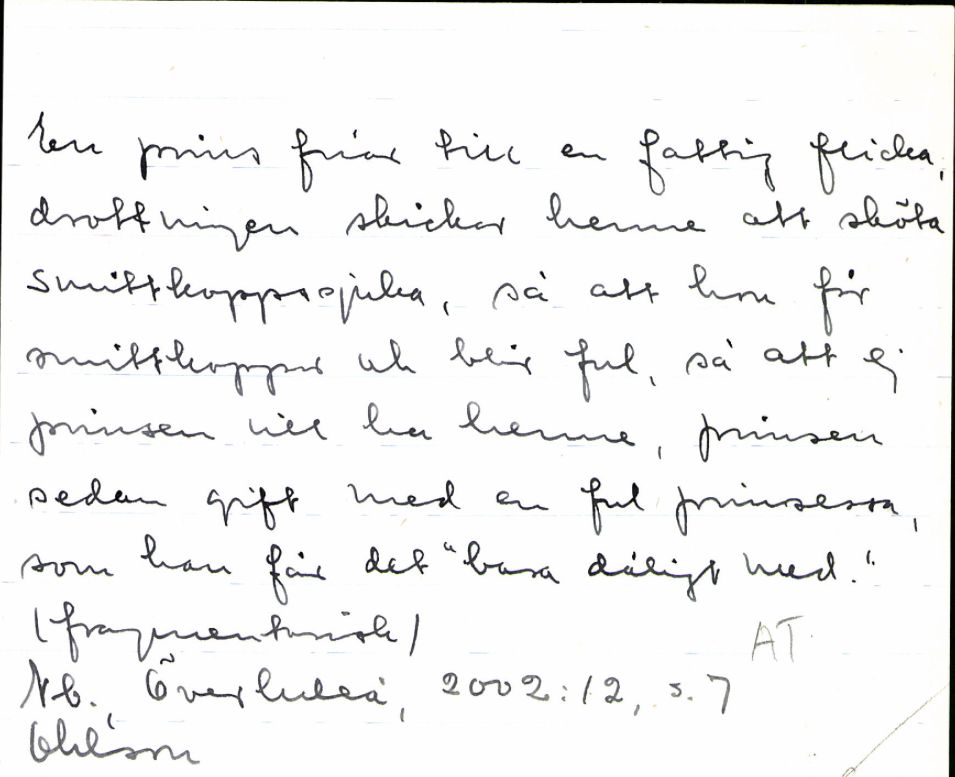 En prins friar till en fattig flicka,
drottningen skickar henne att sköta
smittkoppssjuka, så att hon får
smittkoppor och blir ful, så att ej
prinsen vill ha henne, prinsen
sedan gift med en ful prinsessa,
som han får det "bara dåligt med."
(fragmentarisk)
AT
Nb. Överluleå, 2002:12, s. 7
Ohlson